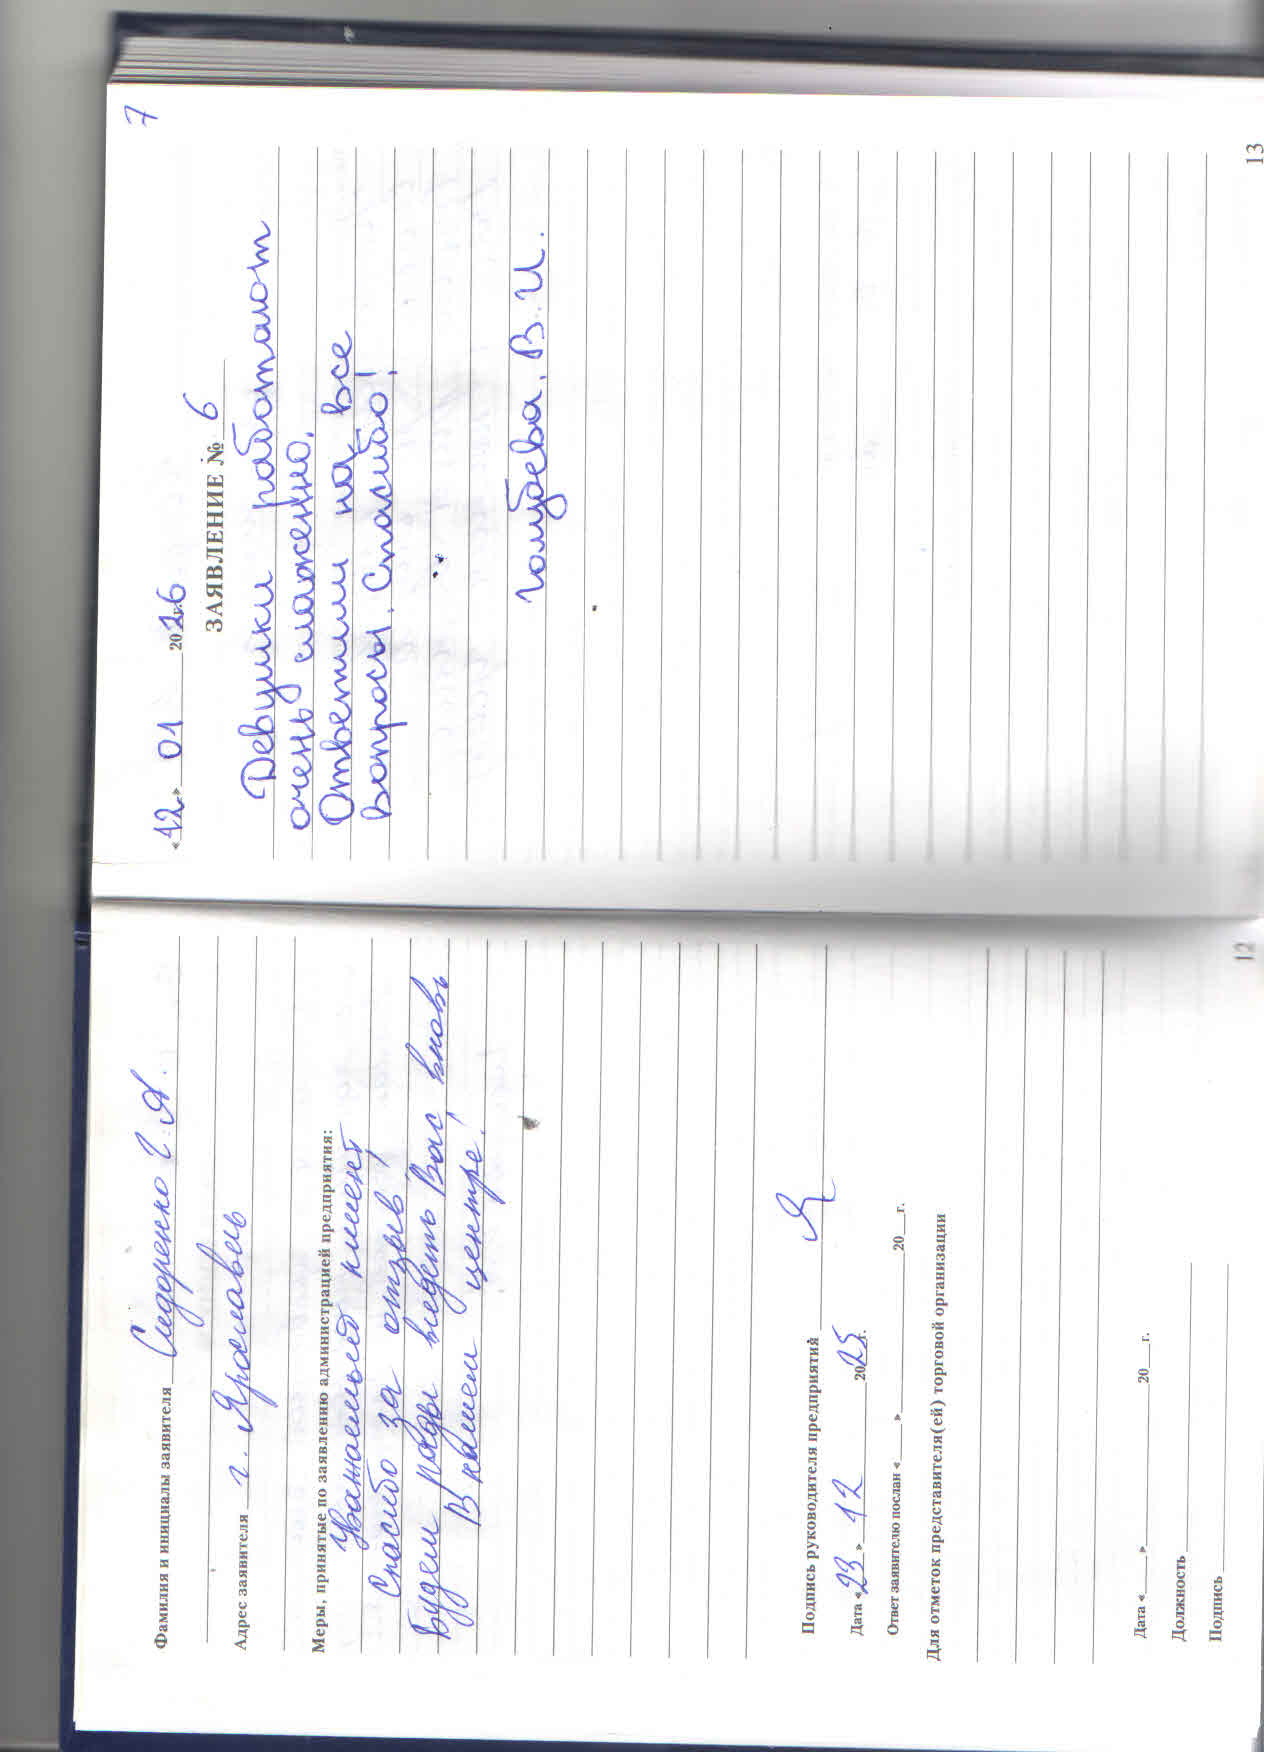 Фамилия и инициалы заявителя Сидоренко Г.А.
Адрес заявителя г. Ярославль
Меры, принятые по заявлению администрацией предприятия:
Уважаемый клиент
Спасибо за отзыв!
Будем рады видеть Вас вновь
В нашем центре!
Подпись руководителя предприятия
Дата «23» 12 2025 г.
Ответ заявителю послан «___» ___ 20__ г.
Для отметок представителя(ей) торговой организации
Дата «___» ___ 20__ г.
Должность
Подпись
12
7
«12» 01 2026 г.
ЗАЯВЛЕНИЕ № 6
Девушки работают
очень слаженно.
Ответили на все
вопросы. Спасибо!
Голубева. В. И.
13